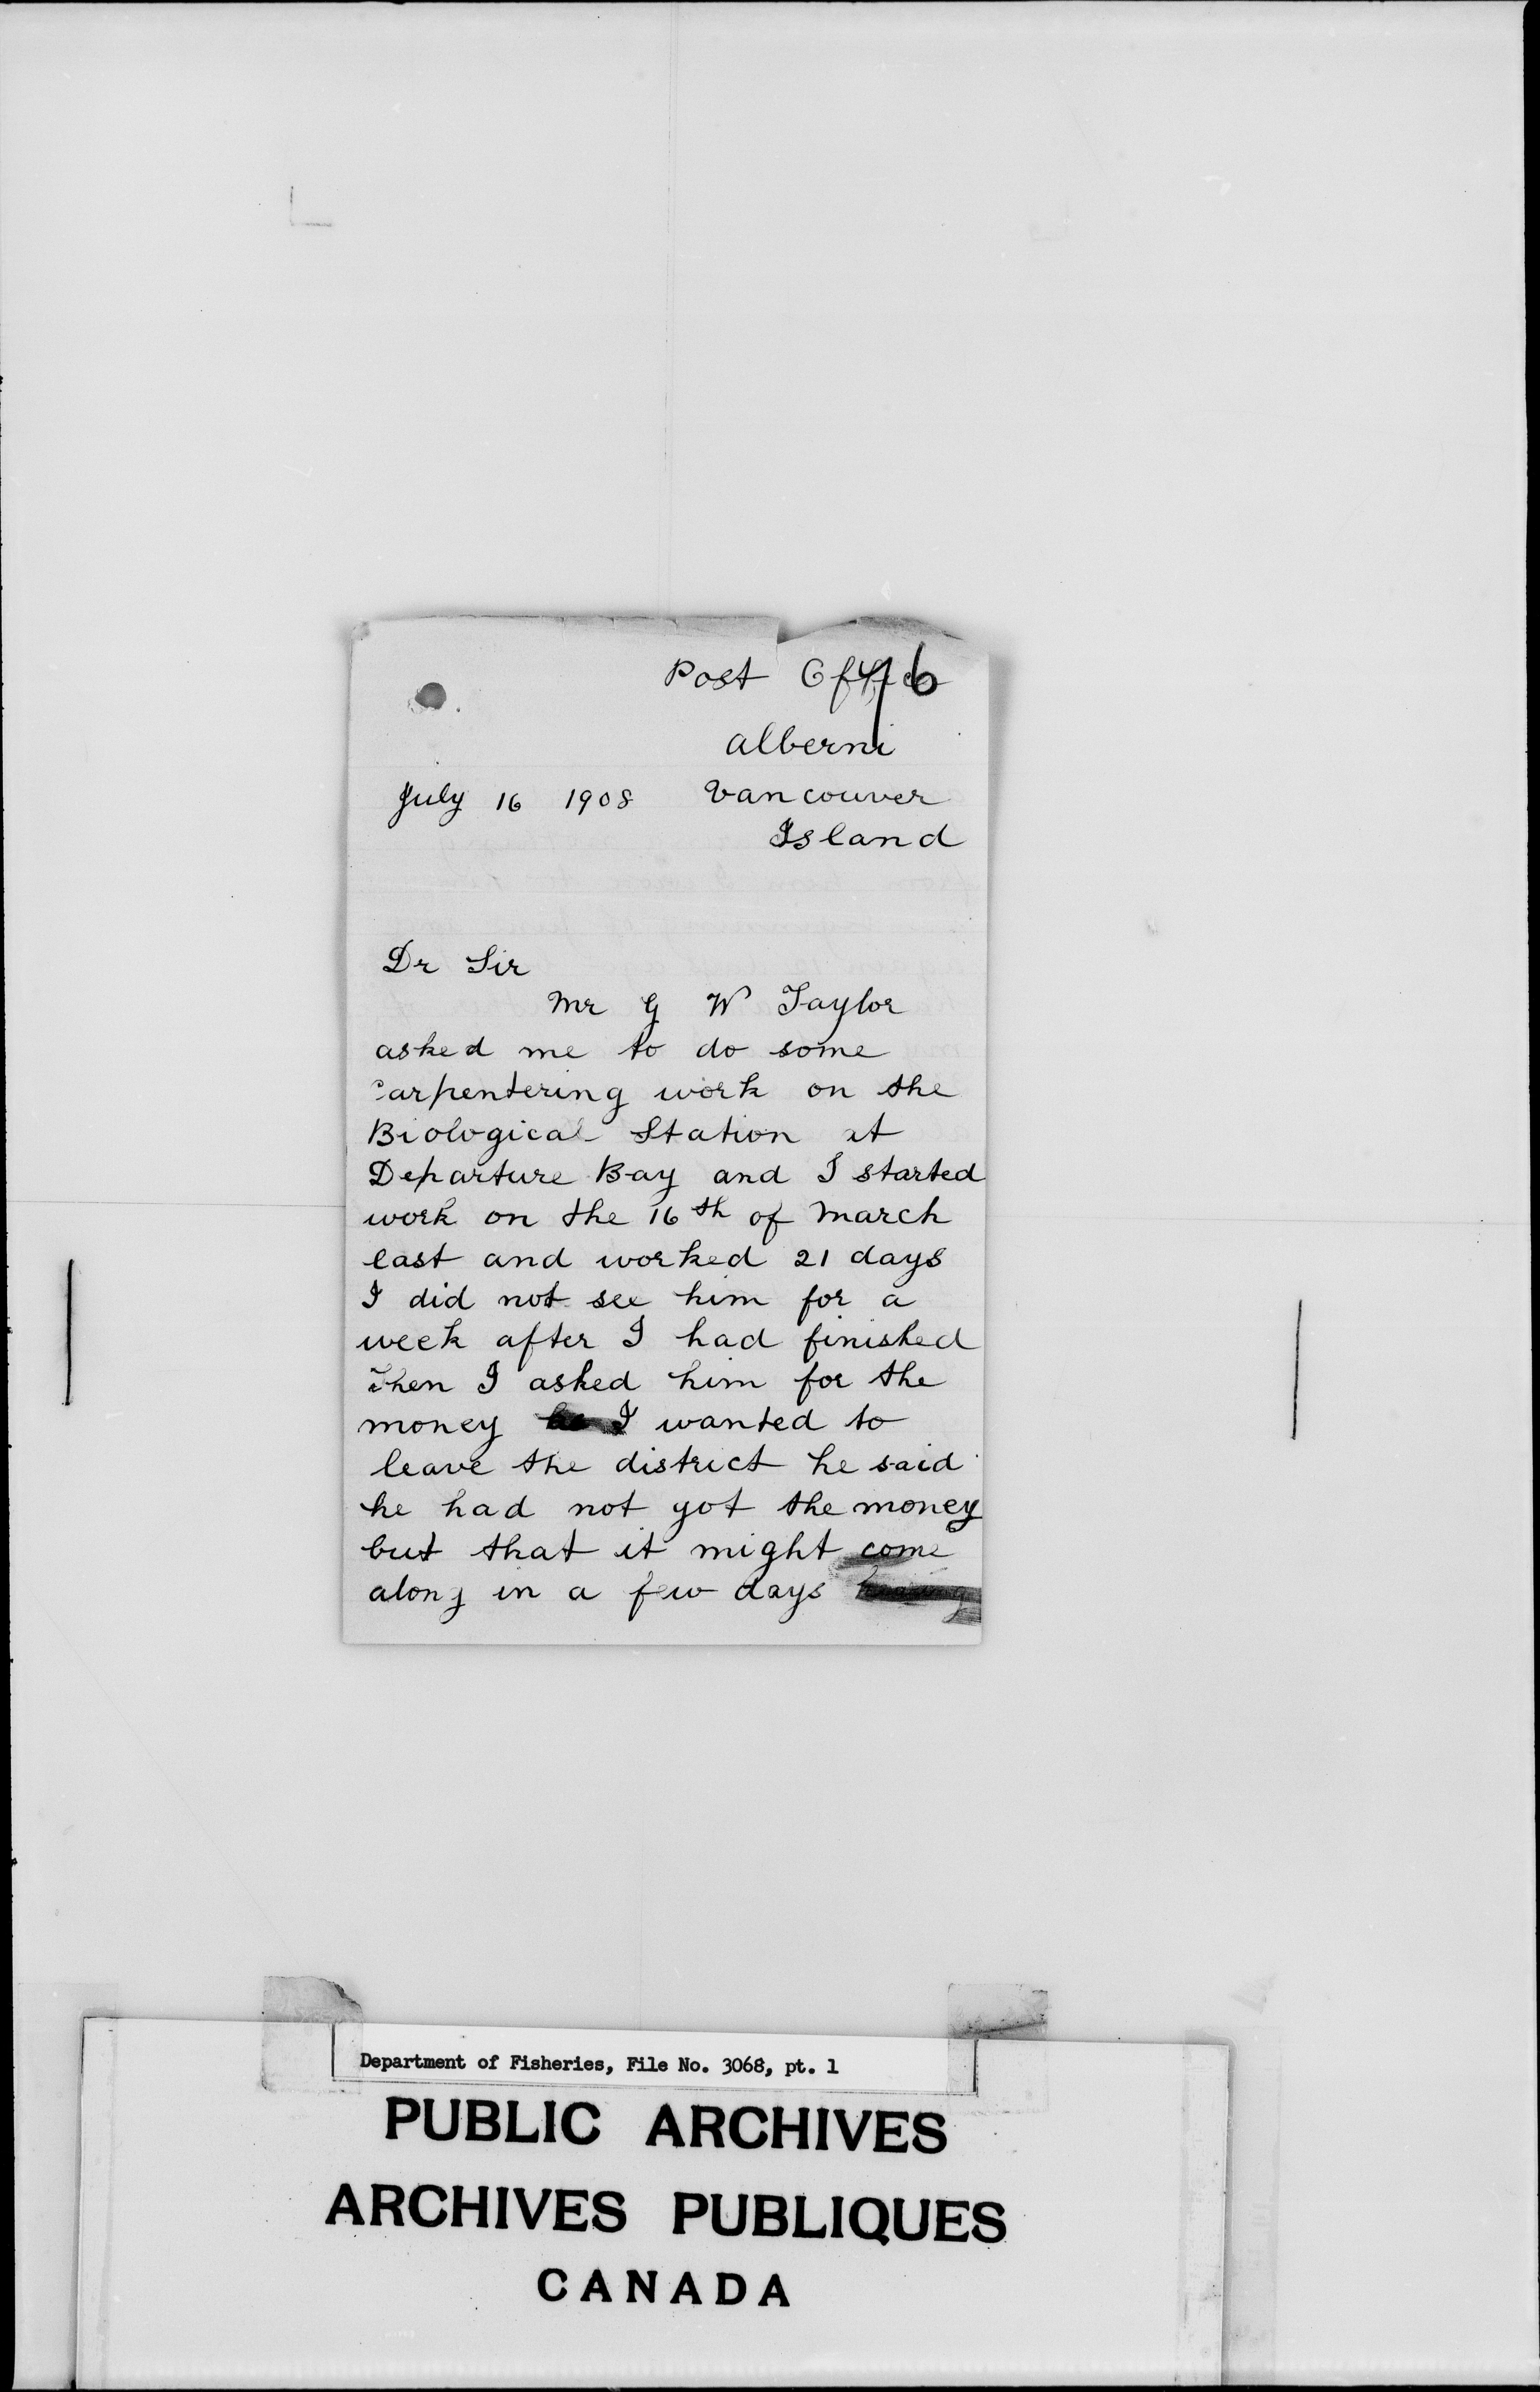 Post Office
Alberni
July 16 1908 Vancouver
Island
Dr Sir
Mr G W Taylor
asked me to do some
carpentering work on the
Biological Station at
Departure Bay and I started
work on the 16th of March
last and worked 21 days
I did not see him for a
week after I had finished
then I asked him for the
money I wanted to
leave the district he said
he had not got the money
but that it might come
along in a few days
Department of Fisheries, File No. 3068, pt. 1
PUBLIC ARCHIVES
ARCHIVES PUBLIQUES
CANADA